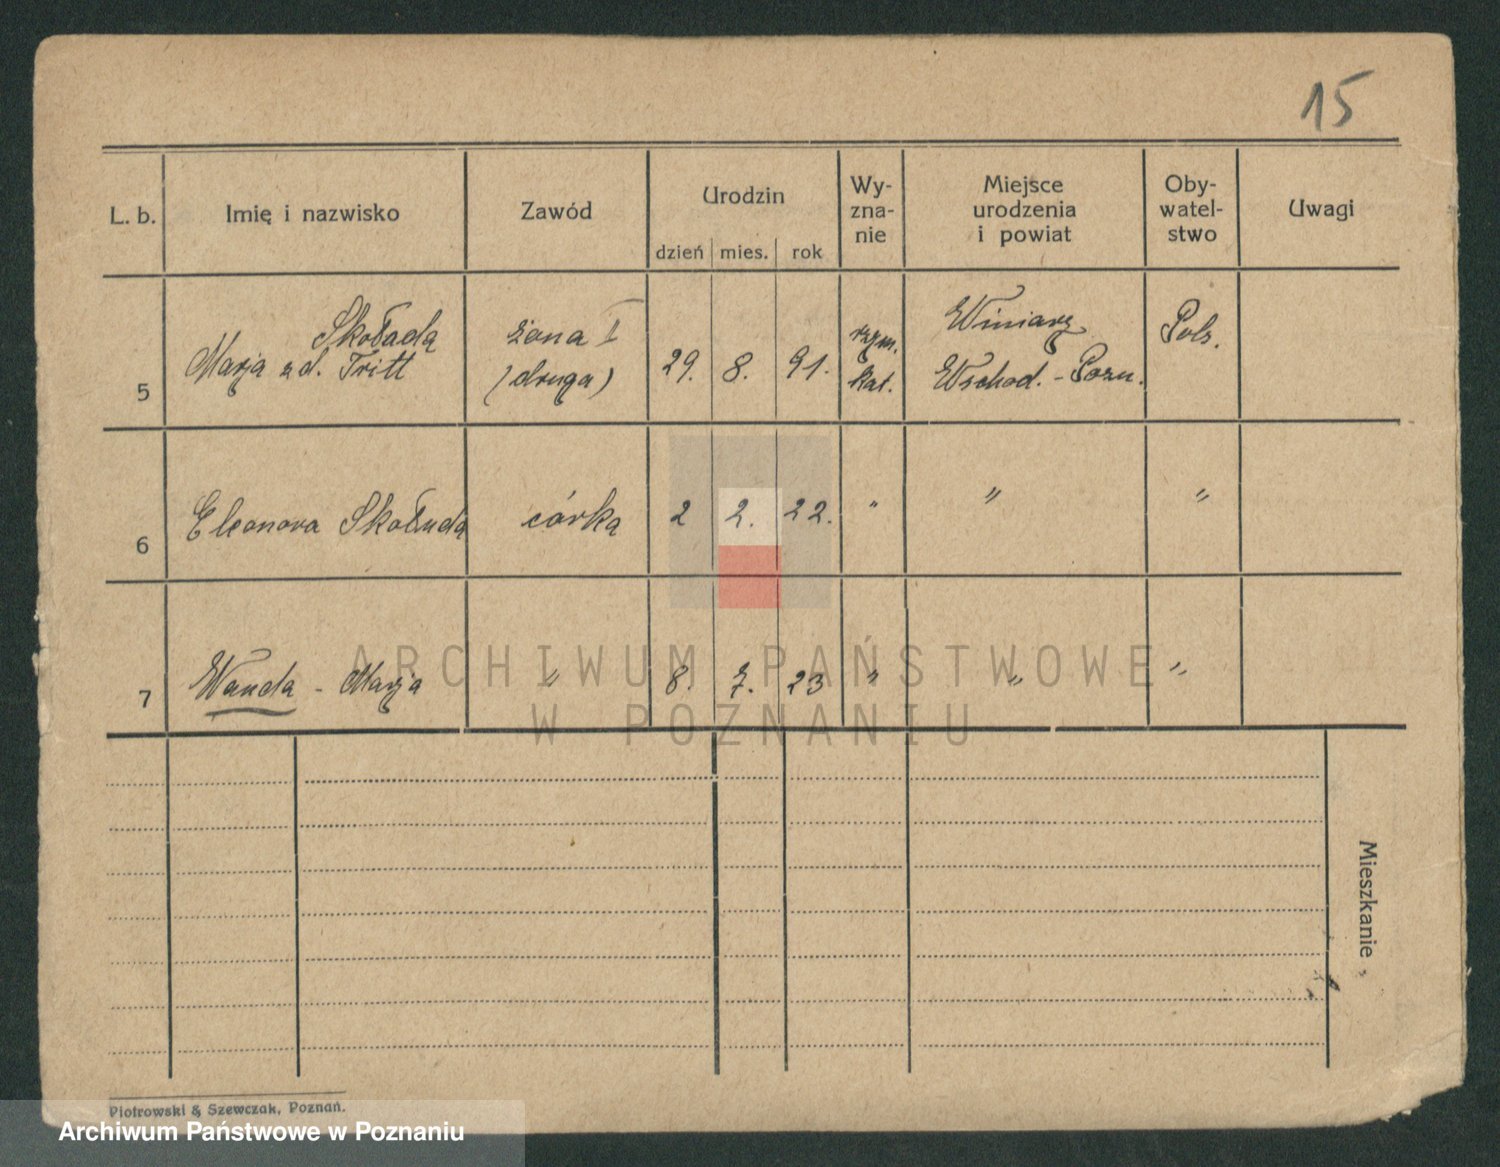 15
L. b. Imię i nazwisko Zawód Urodzin dzień mies. rok Wy-zna-nie Miejsce urodzenia i powiat Oby-watel-stwo Uwagi
Skoładą żona I Winiarz Polz.
5 Marja zd. Tritt (druga) 29. 8. 91. rzym. kat. Wschod. - Pozn.
6 Eleonora Skoładą córka 2 2. 22. " " "
7 Wanda - Marja " 8. 7. 23 " " "
ARCHIWUM PAŃSTWOWE
W POZNANIU
Mieszkanie
Piotrowski & Szewczak, Poznań.
Archiwum Państwowe w Poznaniu